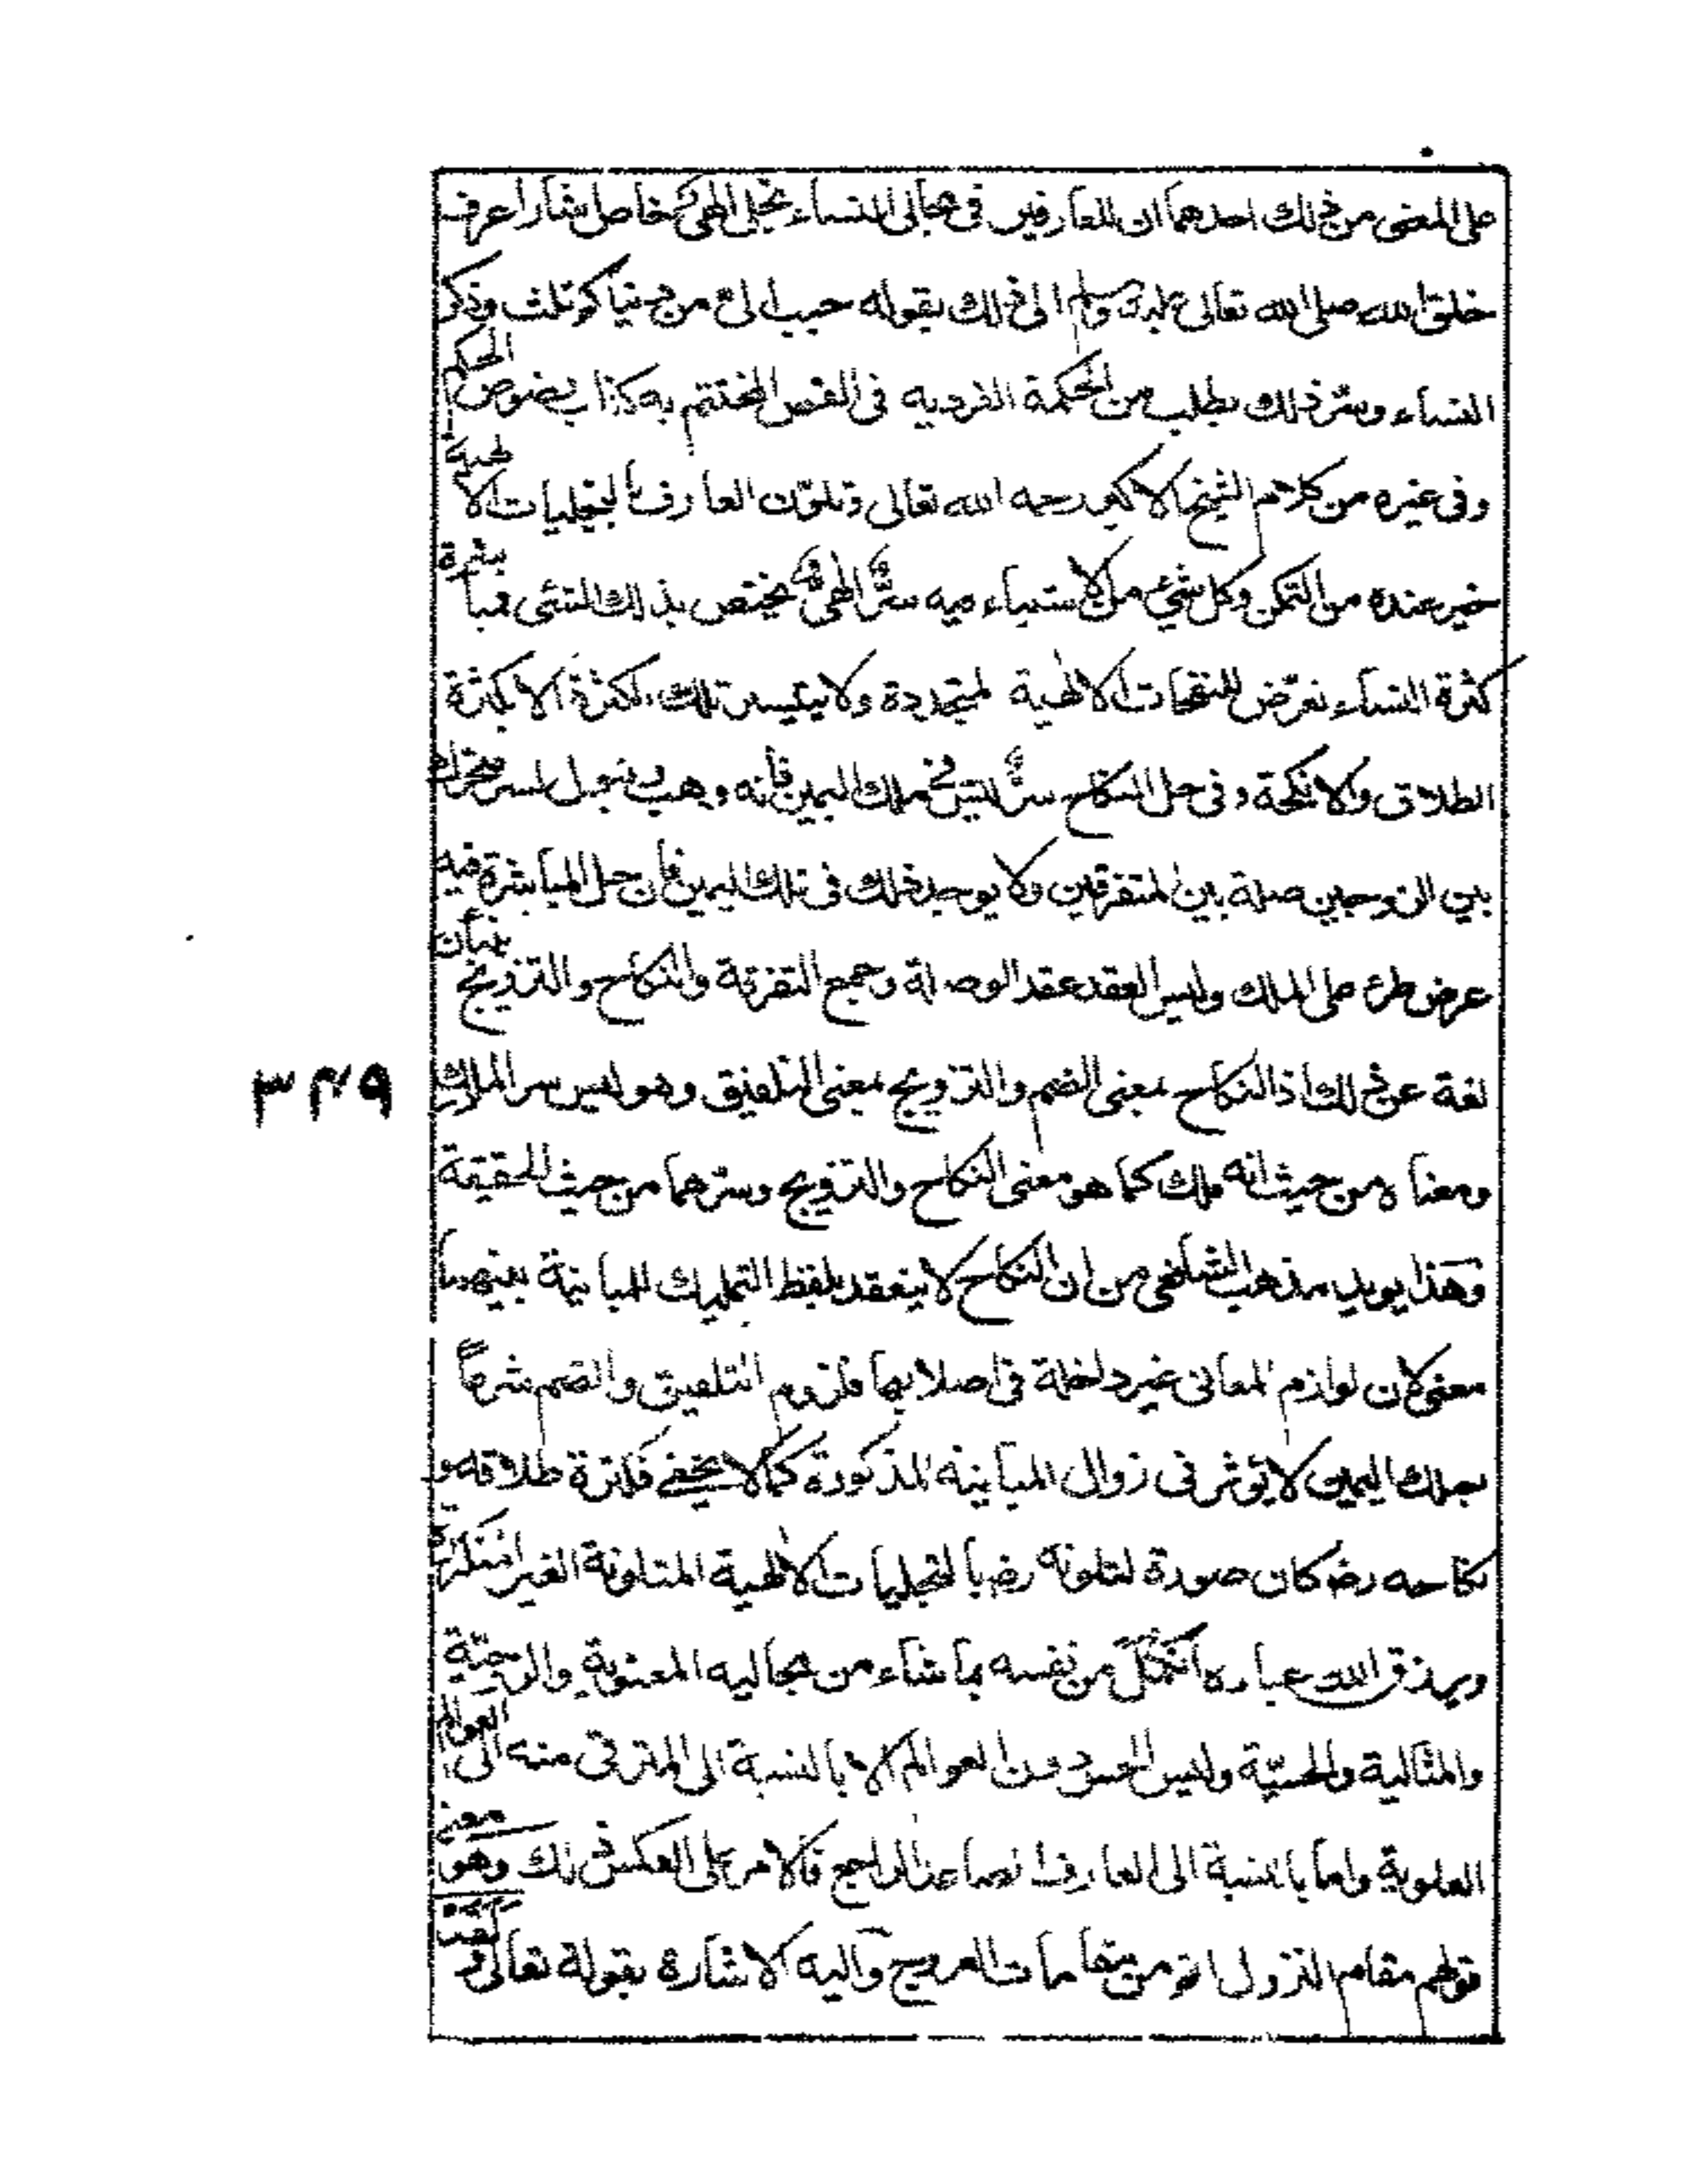 على المعنى من ذلك احدهما ان للعارفين فى مجالى النساء تجلى الهىٌّ خاص اشار اعرف
خلق الله صلى الله تعالى عليه وسلم الى ذلك بقوله حبب الىّ من دنياكم ثلث وذكر
النساء وسرّ ذلك يطلب من الحكمة الفرديه فى الفص المختتم به كتاب فصوص الحكم
وفى غيره من كلام الشيخ الاكبر رحمه الله تعالى وتلوّن العارف بالتجليات الالهية
خير عنده من التمكن وكل شيْ من الاشياء فيه سرٌّ الهىٌّ يختص بذلك الشئى فمباشرة
كثرة النساء تعرّض للنفحات الالهية المتجددة ولا يتيسر تلك الكثرة الا بكثرة
الطلاق والانكحة وفى حل النكاح سرٌّ ليس فى ملك اليمين فانه وهب يجعل
بين الزوجين صلة بين المتفرقين ولا يوجد ذلك فى ملك اليمين فان حل المباشرة فيه
عرض طرء على الملك وليس العقد عقد الوصلة وجمع التفرقة والنكاح والتزويج ينبأن
لغة عن ذلك اذ النكاح بمعنى الضم والتزويج بمعنى التلفيق وهو ليس سر الملك
ومعناه من حيث انه ملك كما هو معنى النكاح والتزويج وسرّهما من حيث الحقيقة
وهذا يويد مذهب الشافعى من ان النكاح لا ينعقد بلفظ التمليك للمباينة بينهما
معنى لان لوازم المعانى غير داخلة فى اصلابها فلزوم التلفيق والضم شرعاً
بملك اليمين لا يوثر فى زوال المباينه المذكورة كما لا يخفى فكثرة طلاقه و
نكاحه رضـ كان صورة لتلونه رضـ بالتجليات الالهية المتلونة الغير المتكررة
ويرزق الله عباده الكمّل من نفسه بما شاء من مجاليه المعنوية والروحيّة
والمثالية والحسيّة وليس الحس دون العوالم الا بالنسبة الى المترقى منه الى العوالم
العلوية واما بالنسبة الى العارف الراجع فالامر على العكس فى ذلك وهو معنى
قولهم مقام النزول اتم من مقامات العروج واليه الاشارة بقولة تعالى ولقد
٣٤٩